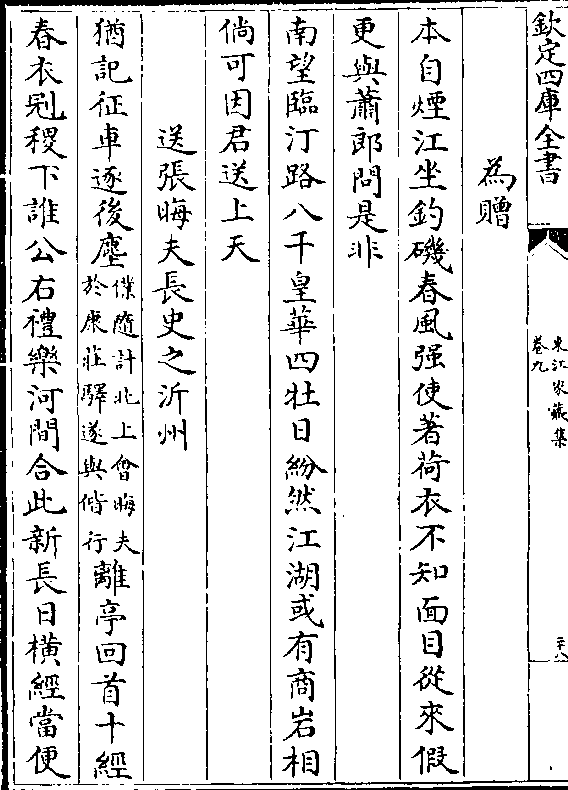 欽定四庫全書
東江家藏集
卷九
二十八
為贈
本自煙江坐釣磯春風强使著荷衣不知面目從來假
更與蕭郎問是非
南望臨汀路八千皇華四牡日紛然江湖或有商岩相
倘可因君送上天
送張晦夫長史之沂州
猶記征車逐後塵僕隨計北上會晦夫於康莊驛遂與偕行離亭回首十經
春衣剡稷下誰公右禮樂河間合此新長日橫經當便